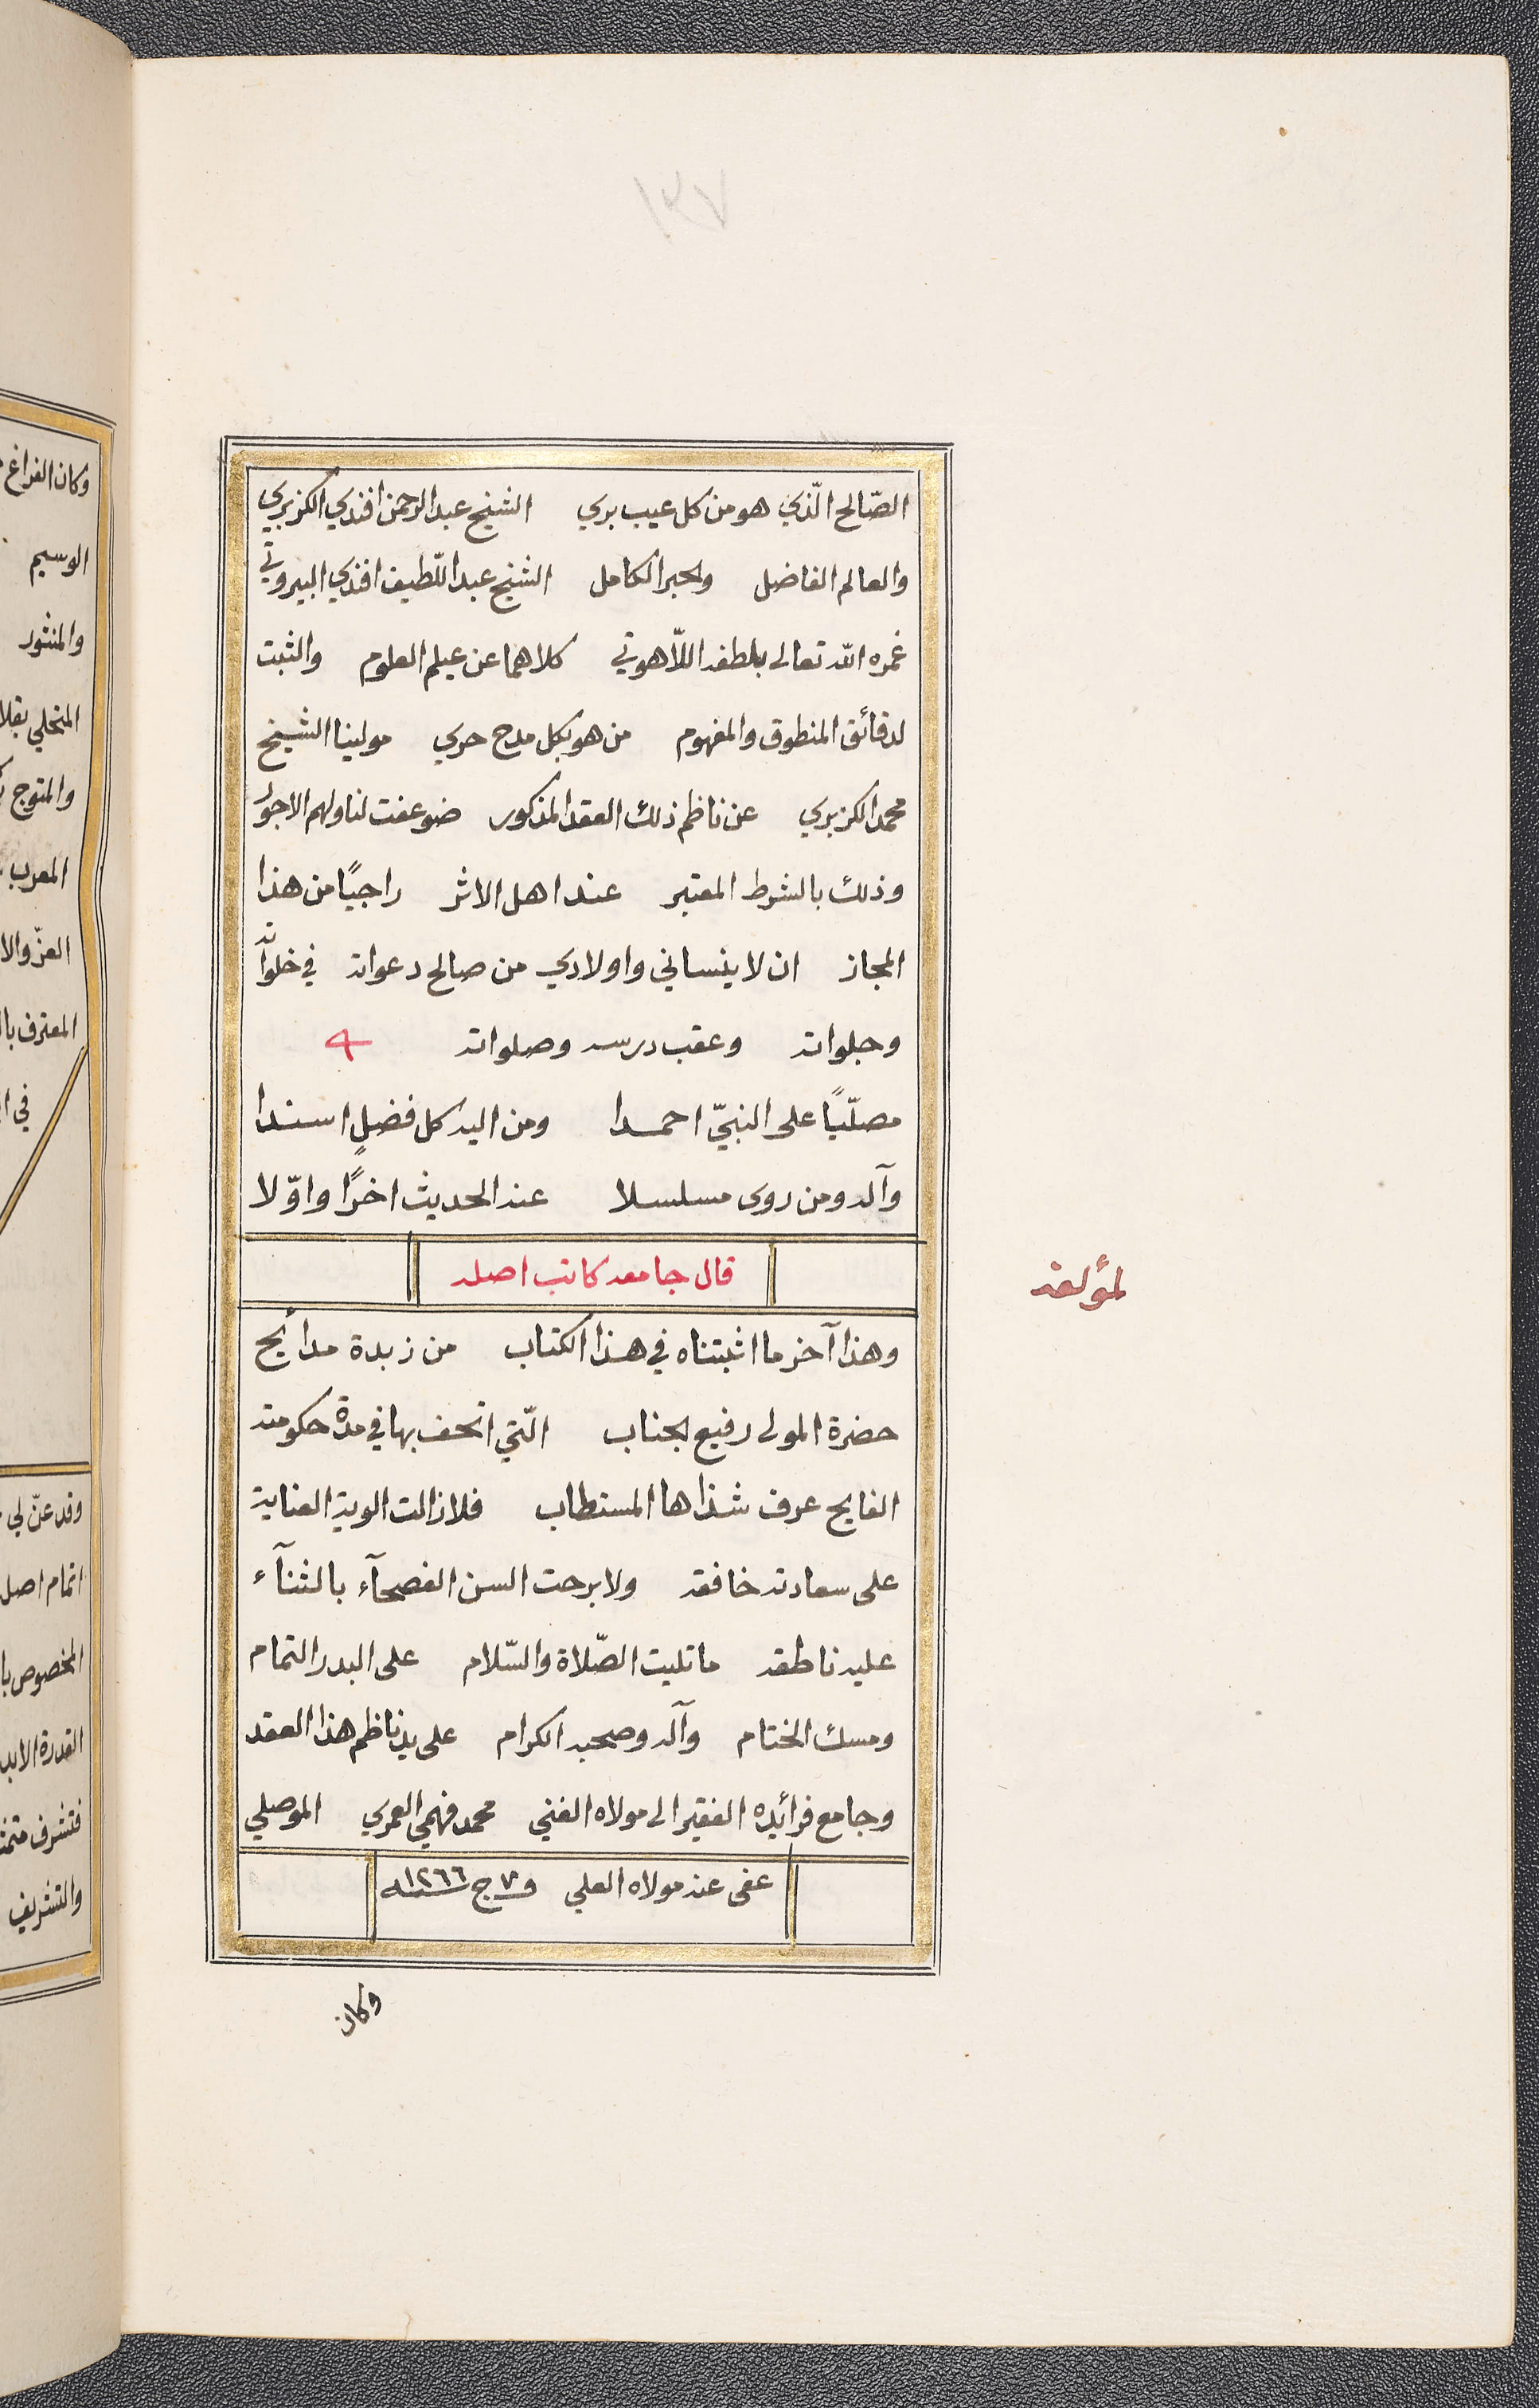 الصّالح الّذي هو من كل عيب بري الشيخ عبد الرحمن افندي الكزبري
والعالم الفاضل والحبر الكامل الشيخ عبد اللّطيف افندي البيروتي
غمره الله تعالى بلطفه اللّاهوتي كلاهما عن عيلم العلوم والثبت
لدقائق المنطوق والمفهوم من هو بكل مدح حري مولينا الشيخ
محمد الكزبري عن ناظم ذلك العقد المذكور ضوعفت لنا ولهم الاجور
وذلك بالشرط المعتبر عند اهل الاثر راجيًا من هذا
المجاز ان لا ينساني واولادي من صالح دعواته في خلواته
وجلواته وعقب درسه وصلواته
مصلّيًا على النبيّ احمدا ومن اليه كل فضلٍ اسندا
وآله ومن روى مسلسلا عند الحديث اخرًا واوّلا
قال جامعه كاتب اصله
لمؤلفه
وهذا آخر ما اثبتناه في هذا الكتاب من زبدة مدائح
حضرة المولى رفيع الجناب الّتي اتحف بها في مدة حكومته
الفايح عرف شذاها المستطاب فلا زالت الوية العناية
على سعادته خافقه ولا برحت السن الفصحآء بالثنآء
عليه ناطقه ما تليت الصّلاة والسّلام على البدر التمام
ومسك الختام وآله وصحبه الكرام على يد ناظم هذا العقد
وجامع فرائده الفقير الى مولاه الغني محمد فهمي العمري الموصلي
عفى عنه مولاه العلي في ٧ ج سنة ١٢٦٦
وكان
وكان الفراغ
الوسيم
والمنثور
المتحلي بقلا
والمتوج
المعرب
العزّ والا
المعترف بال
في ا
وقد عنّ لي
اتمام اصل
المخصوص با
القدرة الابد
فتشرف
والتشريف